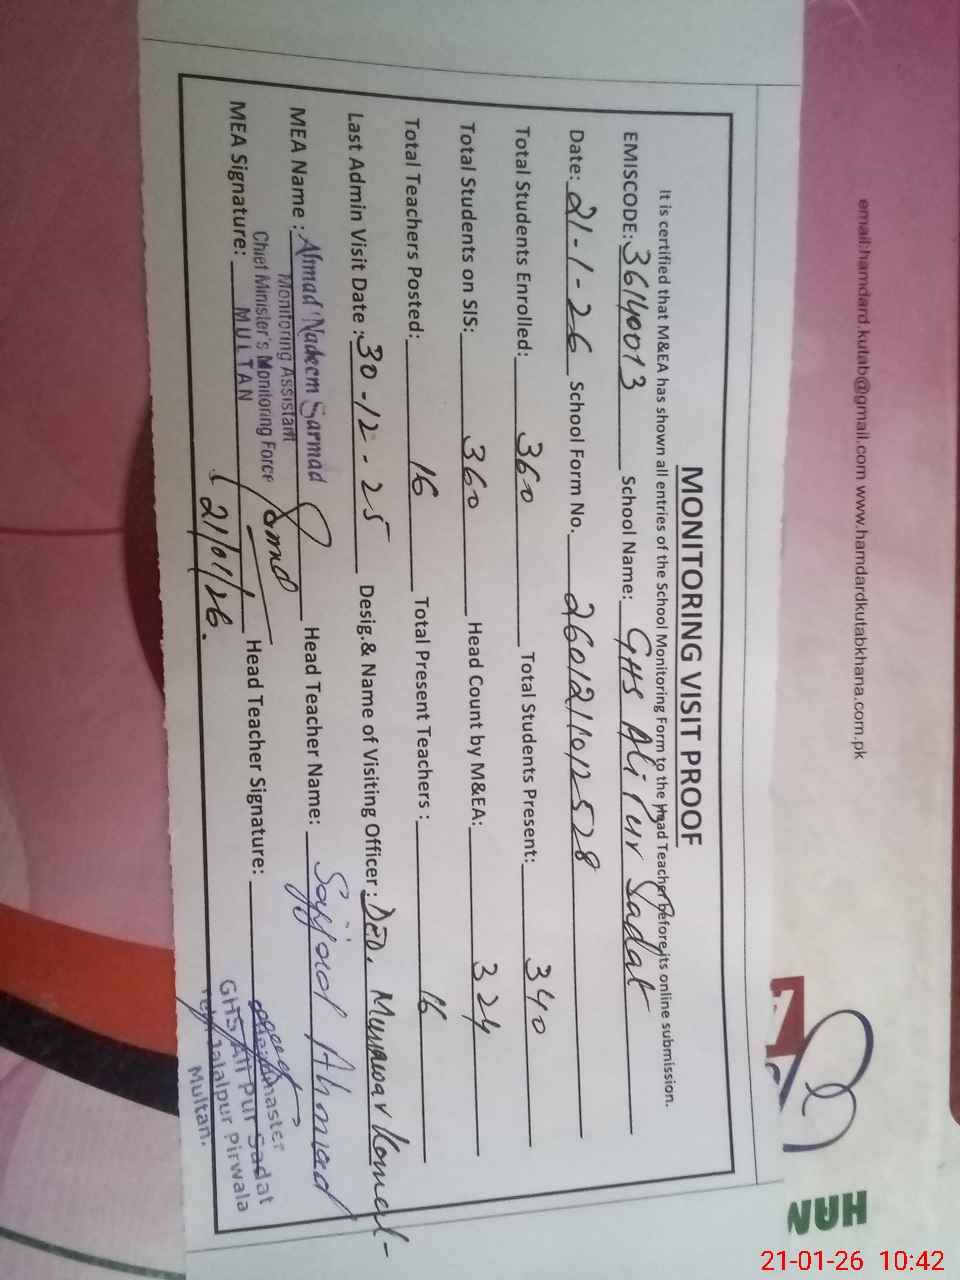 email:hamdard.kutab@gmail.com www.hamdardkutabkhana.com.pk
HAN
MONITORING VISIT PROOF
It is certified that M&EA has shown all entries of the School Monitoring Form to the Head Teacher before its online submission.
EMISCODE: 36140013 School Name: GHS Ali Pur Sadat
Date: 21-1-26 School Form No. 2601211012528
Total Students Enrolled: 360 Total Students Present: 340
Total Students on SIS: 360 Head Count by M&EA: 324
Total Teachers Posted: 16 Total Present Teachers : 16
Last Admin Visit Date : 30-12-25 Desig.& Name of Visiting Officer : DEO, Munawar Komal
MEA Name : Ahmad Nadeem Sarmad Head Teacher Name: Sajjad Ahmad
Monitoring Assistant
Chief Minister's Monitoring Force
MULTAN
MEA Signature: Head Teacher Signature:
21/01/26.
Headmaster
GHS Ali Pur Sadat
Teh: Jalalpur Pirwala
Multan.
21-01-26 10:42